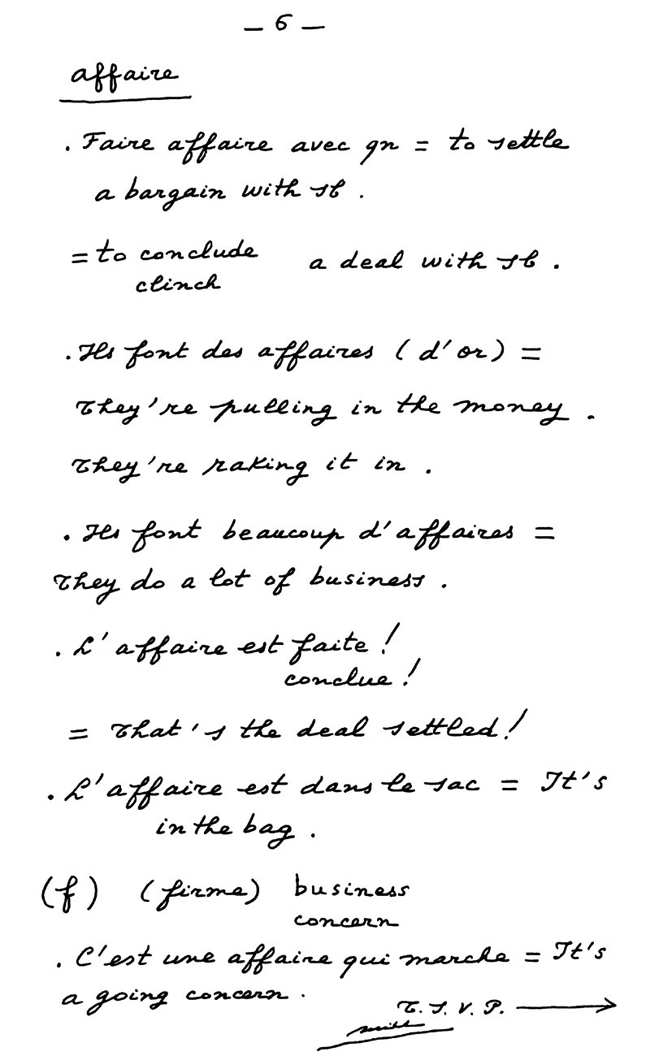 – 6 –
affaire
. Faire affaire avec qn = to settle
a bargain with sb .
= to conclude a deal with sb .
clinch
. Ils font des affaires ( d'or ) =
They're pulling in the money .
They're raking it in .
. Ils font beaucoup d'affaires =
They do a lot of business .
. L'affaire est faite !
conclue !
= That's the deal settled !
. L'affaire est dans le sac = It's
in the bag .
(f) (firme) business
concern
. C'est une affaire qui marche = It's
a going concern .
T. S. V. P. →